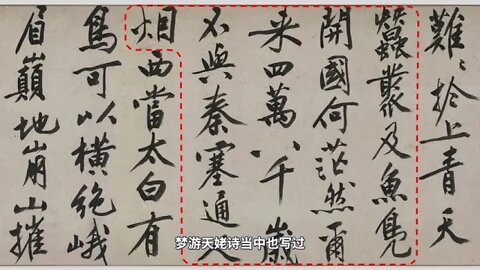 難〻於上青天
蠶叢及魚鳧
開國何茫然爾
來四萬八千歲
不與秦塞通人
烟西當太白有
鳥可以橫絶峨
眉巔地崩山摧
梦游天姥诗当中也写过